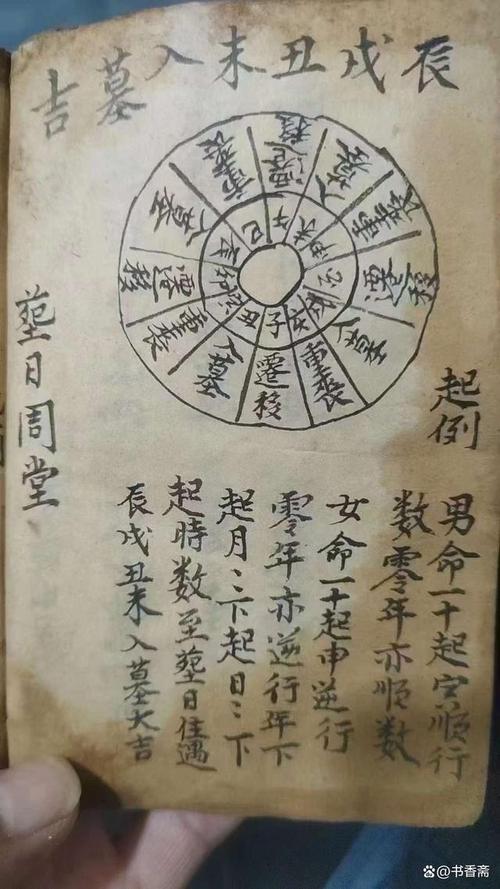 辰戌丑未入墓吉
子 遷移
丑 入墓
寅 重喪
卯 遷移
辰 入墓
巳 重喪
午 遷移
未 入墓
申 重喪
酉 遷移
戌 入墓
亥 重喪
起例
男命一十起寅順行
数零年亦順数
女命一十起申逆行
零年亦逆行年下
起月〻下起日〻下
起時数至塟日住遇
辰戌丑未入墓大吉
塟日周堂
@书香斋